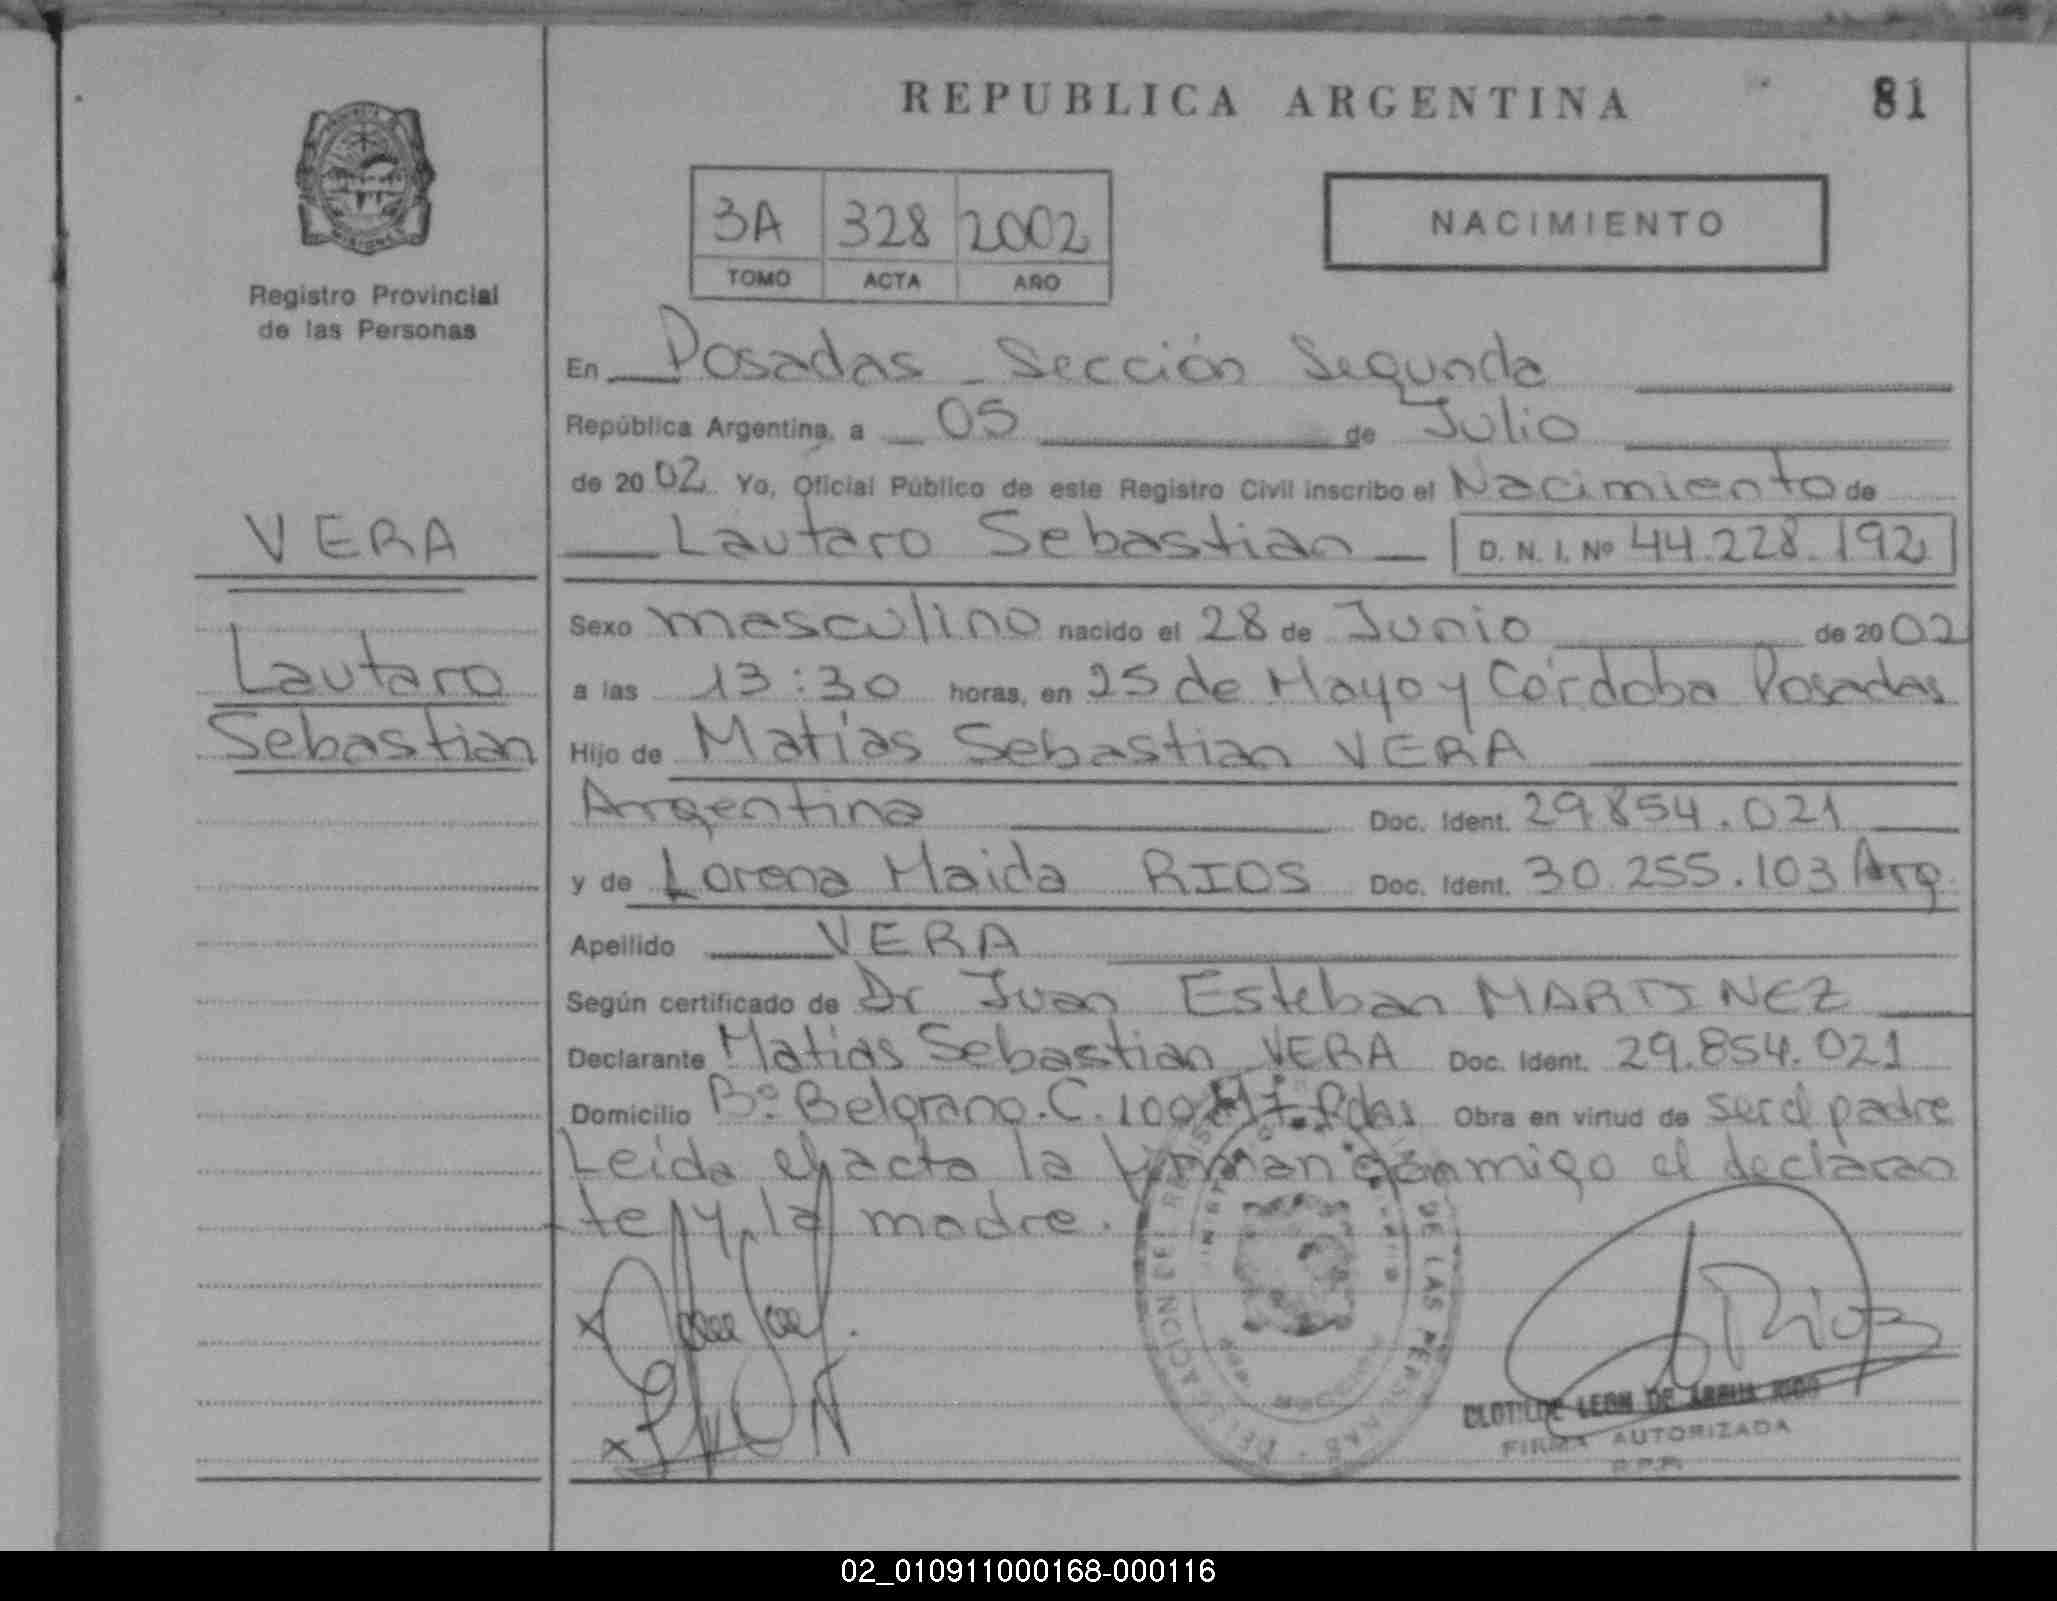 REPUBLICA ARGENTINA 81
Registro Provincial
de las Personas
3A 328 2002
TOMO ACTA AÑO
NACIMIENTO
En Posadas - Sección Segunda
República Argentina, a 05 de Julio
de 2002 Yo, Oficial Público de este Registro Civil inscribo el Nacimiento de
VERA
Lautaro Sebastian D. N. I. Nº 44.228.192
Sexo masculino nacido el 28 de Junio de 2002
Lautaro
a las 13:30 horas, en 25 de Mayo y Córdoba Posadas
Sebastian
Hijo de Matías Sebastian VERA
Argentina Doc. Ident. 29.854.021
y de Lorena Maida RIOS Doc. Ident. 30.255.103 Arg.
Apellido VERA
Según certificado de Dr Juan Esteban MARTINEZ
Declarante Matias Sebastian VERA Doc. Ident. 29.854.021
Domicilio Bº Belgrano. C. 109 Pdas Obra en virtud de ser el padre
Leida el acta la firman conmigo el declaran
te y la madre.
DE LAS PERSONAS
Rios
CLOTILDE LEON DE
FIRMA AUTORIZADA
R.P.P.
02_010911000168-000116